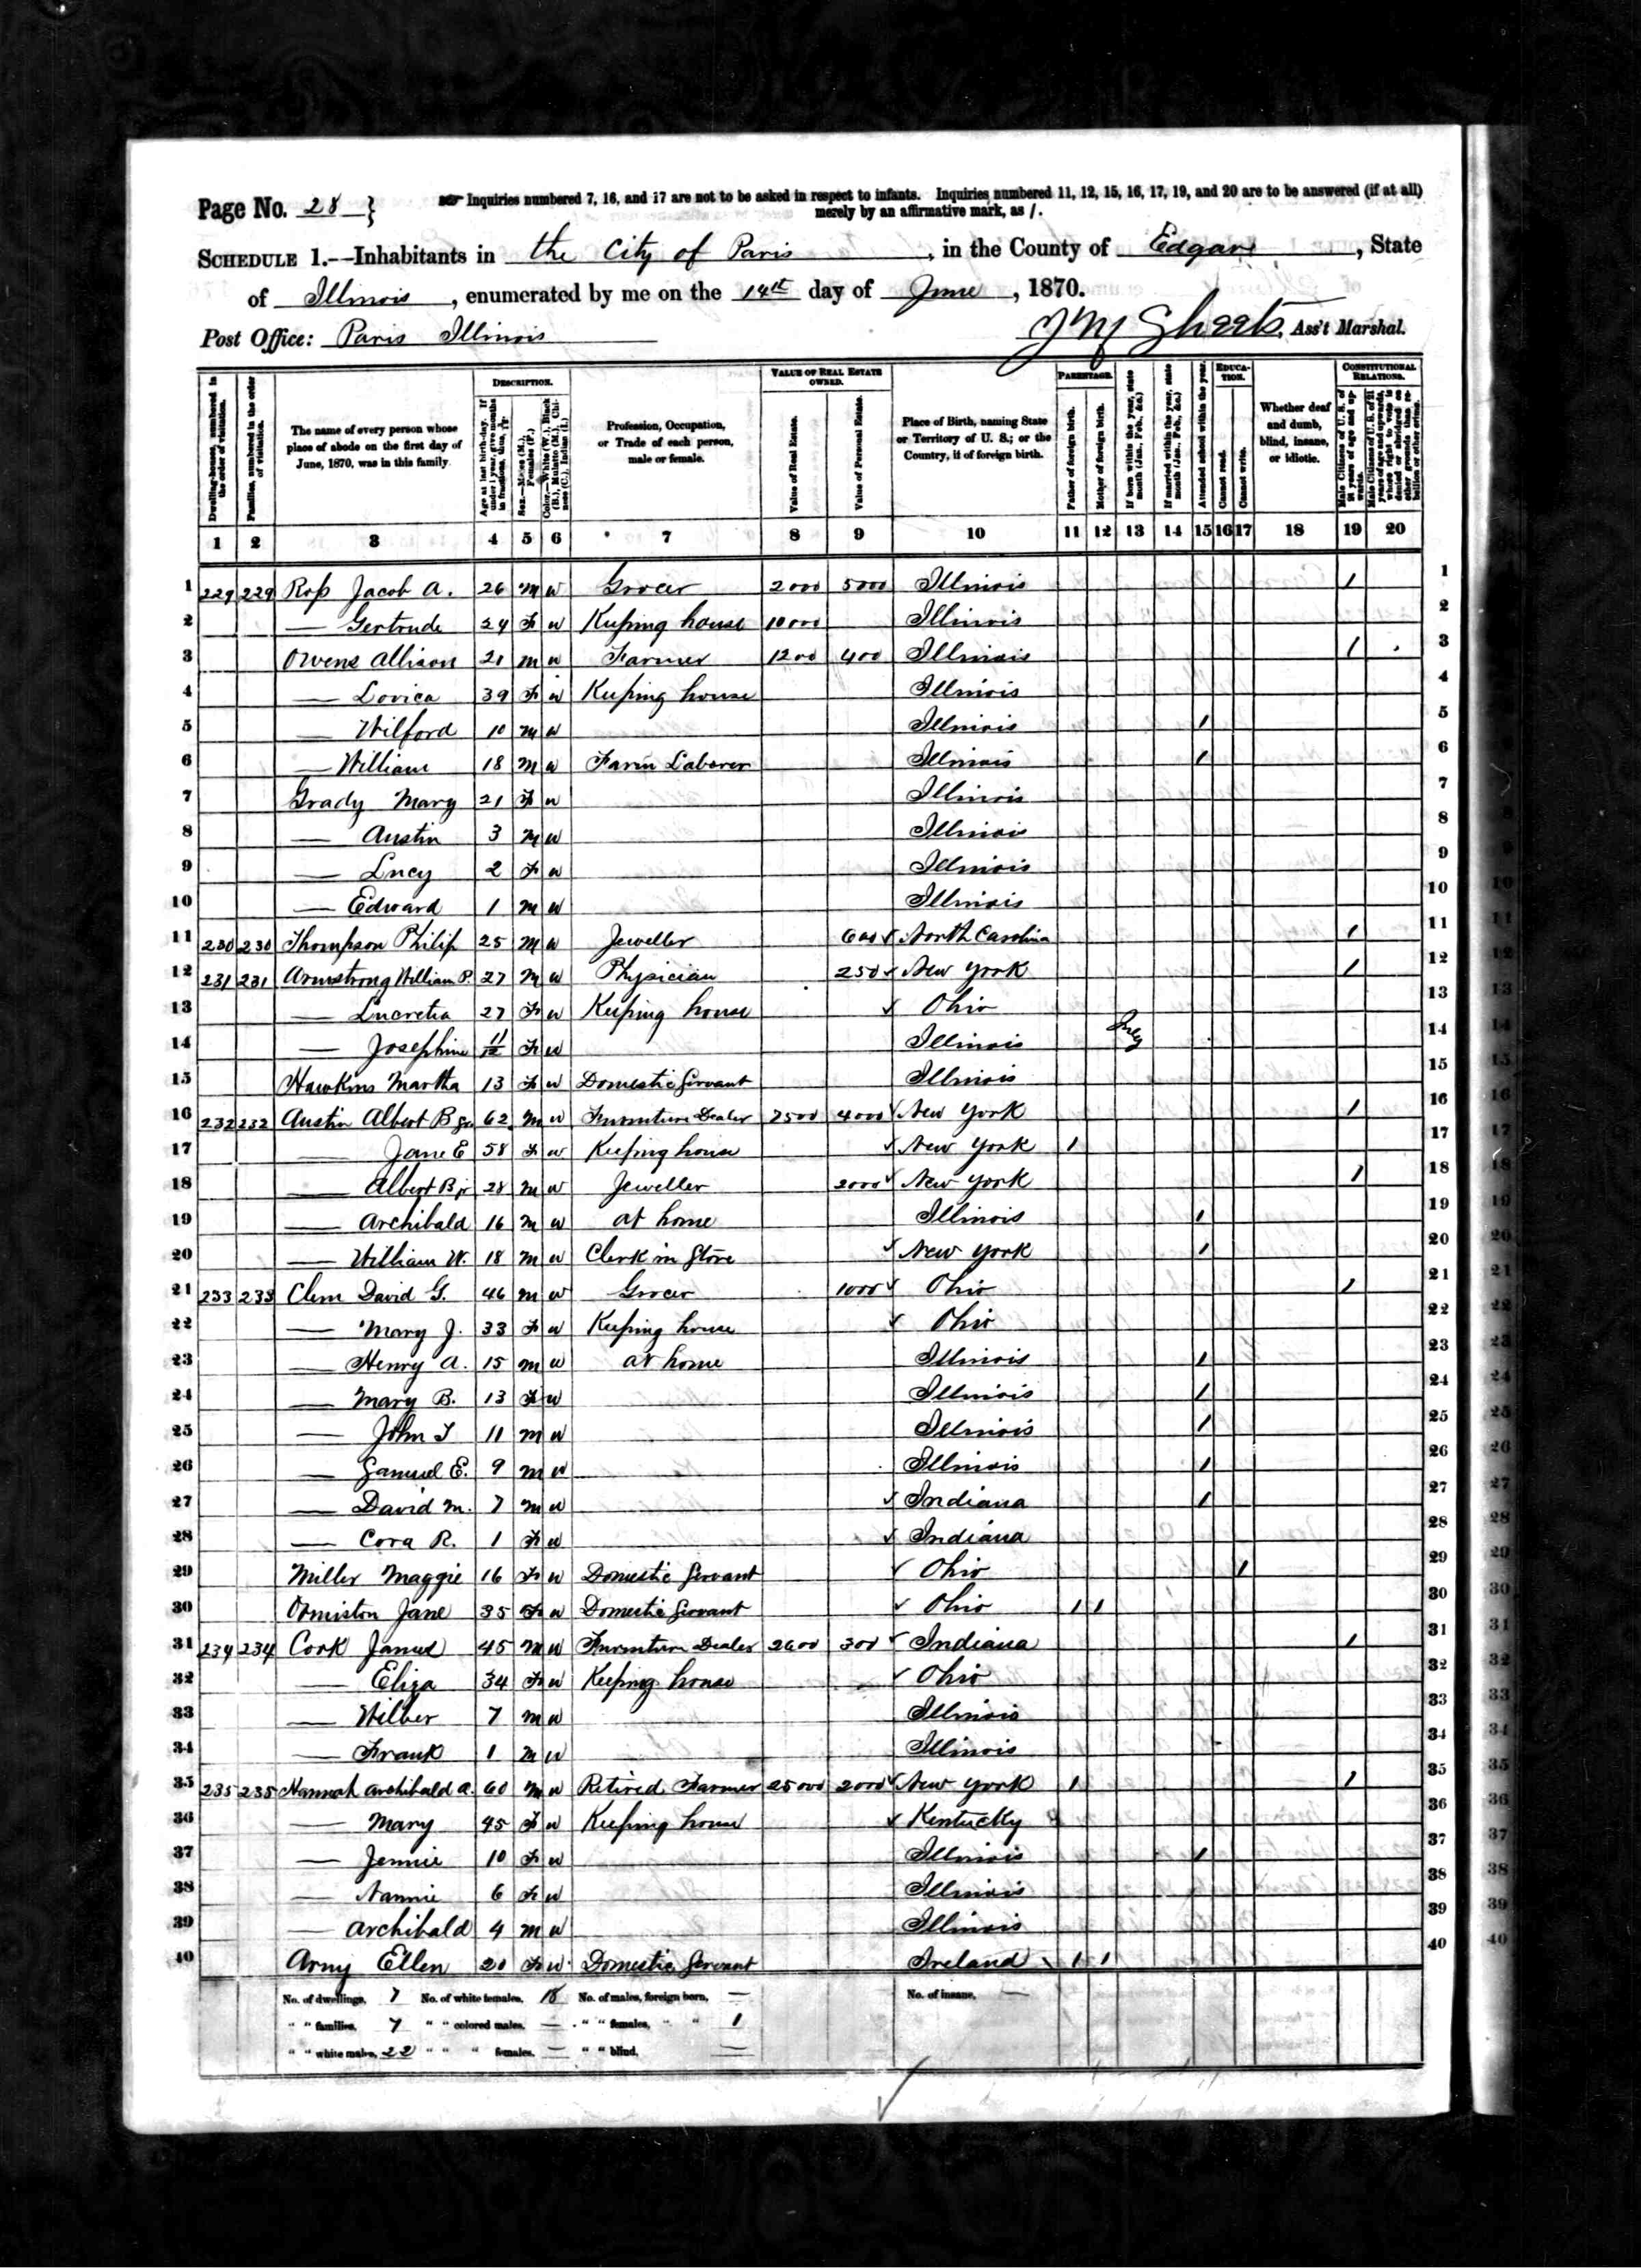 Page No. 28 } Inquiries numbered 7, 16, and 17 are not to be asked in respect to infants. Inquiries numbered 11, 12, 15, 16, 17, 19, and 20 are to be answered (if at all)
merely by an affirmative mark, as /.
SCHEDULE 1.—Inhabitants in the City of Paris, in the County of Edgar, State
of Illinois, enumerated by me on the 14th day of June, 1870.
Post Office: Paris Illinois J M Sheets, Ass't Marshal.
Dwelling-houses, numbered in the order of visitation.
Families, numbered in the order of visitation.
The name of every person whose place of abode on the first day of June, 1870, was in this family.
DESCRIPTION.
Age at last birth-day. If under 1 year, give months in fractions, thus,
Sex.—Males (M.), Females (F.)
Color.—White (W.), Black (B.), Mulatto (M.), Chinese (C.), Indian (I.)
Profession, Occupation, or Trade of each person, male or female.
VALUE OF REAL ESTATE OWNED.
Value of Real Estate.
Value of Personal Estate.
Place of Birth, naming State or Territory of U. S.; or the Country, if of foreign birth.
PARENTAGE.
Father of foreign birth.
Mother of foreign birth.
If born within the year, state month (Jan., Feb., &c.)
If married within the year, state month (Jan., Feb., &c.)
Attended school within the year.
EDUCATION.
Cannot read.
Cannot write.
Whether deaf and dumb, blind, insane, or idiotic.
CONSTITUTIONAL RELATIONS.
Male Citizens of U. S. of 21 years of age and upwards.
Male Citizens of U. S. of 21 years of age and upwards, whose right to vote is denied or abridged on other grounds than rebellion or other crime.
1 2 3 4 5 6 7 8 9 10 11 12 13 14 15 16 17 18 19 20
1 229 229 Ross Jacob A. 26 M W Grocer 2000 5000 Illinois / 1
2 — Gertrude 24 F W Keeping house 10000 Illinois 2
3 Owens Allison 21 M W Farmer 1200 400 Illinois / 3
4 — Lovica 39 F W Keeping house Illinois 4
5 — Wilford 10 M W Illinois / 5
6 — William 18 M W Farm Laborer Illinois / 6
7 Grady Mary 21 F W Illinois 7
8 — Austin 3 M W Illinois 8
9 — Lucy 2 F W Illinois 9
10 — Edward 1 M W Illinois 10
11 230 230 Thompson Philip 25 M W Jeweller 600 ✓ North Carolina / 11
12 231 231 Armstrong William P. 27 M W Physician 250 ✓ New York / 12
13 — Lucretia 27 F W Keeping house ✓ Ohio 13
14 — Josephine 11/12 F W Illinois July 14
15 Hawkins Martha 13 F W Domestic Servant Illinois 15
16 232 232 Austin Albert B Sr 62 M W Furniture Dealer 2500 4000 ✓ New York / 16
17 — Jane E 58 F W Keeping house ✓ New York / 17
18 — Albert B jr 28 M W Jeweller 2000 ✓ New York / 18
19 — Archibald 16 M W at home Illinois / 19
20 — William W. 18 M W Clerk in Store ✓ New York / 20
21 233 233 Clem David G. 46 M W Grocer 1000 ✓ Ohio / 21
22 — Mary J. 33 F W Keeping house ✓ Ohio 22
23 — Henry A. 15 M W at home Illinois / 23
24 — Mary B. 13 F W Illinois / 24
25 — John T 11 M W Illinois / 25
26 — Samuel E. 9 M W Illinois / 26
27 — David M. 7 M W ✓ Indiana / 27
28 — Cora R. 1 F W ✓ Indiana 28
29 Miller Maggie 16 F W Domestic Servant ✓ Ohio / 29
30 Ormiston Jane 35 F W Domestic Servant ✓ Ohio / / 30
31 234 234 Cork James 45 M W Furniture Dealer 2600 300 ✓ Indiana / 31
32 — Eliza 34 F W Keeping house ✓ Ohio 32
33 — Wilber 7 M W Illinois 33
34 — Frank 1 M W Illinois 34
35 235 235 Hannah Archibald A. 60 M W Retired Farmer 25000 2000 ✓ New York / / 35
36 — Mary 45 F W Keeping house ✓ Kentucky 36
37 — Jennie 10 F W Illinois / 37
38 — Nannie 6 F W Illinois 38
39 — Archibald 4 M W Illinois 39
40 Army Ellen 20 F W Domestic Servant Ireland / / 40
No. of dwellings, 7 No. of white females, 18 No. of males, foreign born, — No. of insane, —
" " families, 7 " " colored males, — " " females, " " 1
" " white males, 22 " " " females, — " " blind, —